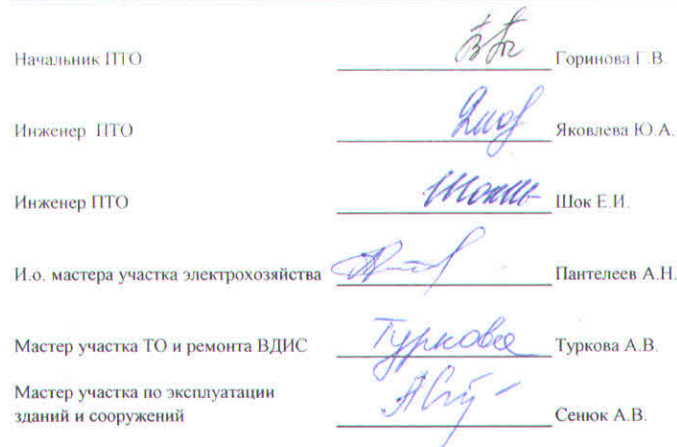 Начальник ПТО Горинова Г.В.
Инженер ПТО Яковлева Ю.А.
Инженер ПТО Шок Е.И.
И.о. мастера участка электрохозяйства Пантелеев А.Н.
Мастер участка ТО и ремонта ВДИС Туркова Туркова А.В.
Мастер участка по эксплуатации
зданий и сооружений Сенюк А.В.